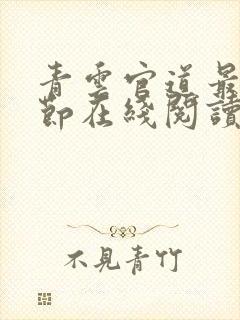 青雲官道最
節在綫閱讀
不見青竹